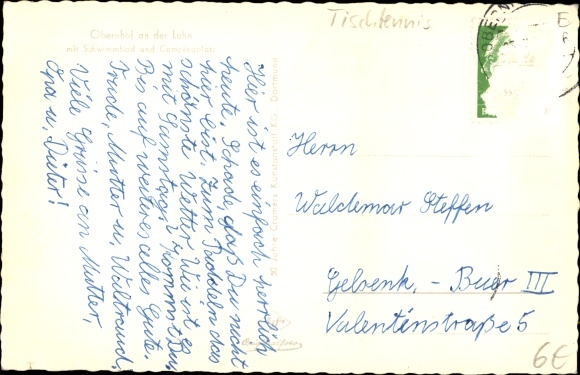 Tischtennis
Obernhof an der Lahn
mit Schwimmbad und Campingplatz
Hier ist es einfach herrlich
heute. Schade, daß Du nicht
hier bist. Zum Paddeln das
schönste Wetter. Wie ist es
mit Samstag? kommst Du,
Bis auf weiteres alles Gute.
Trude, Mutter u. Waltraud,
Viele Grüsse an Mutter,
Opa u. Dieter!
50 Jahre Cramers Kunstanstalt KG., Dortmund
Herrn
Waldemar Steffen
Gelsenk. - Buer III
Valentinstraße 5
6€